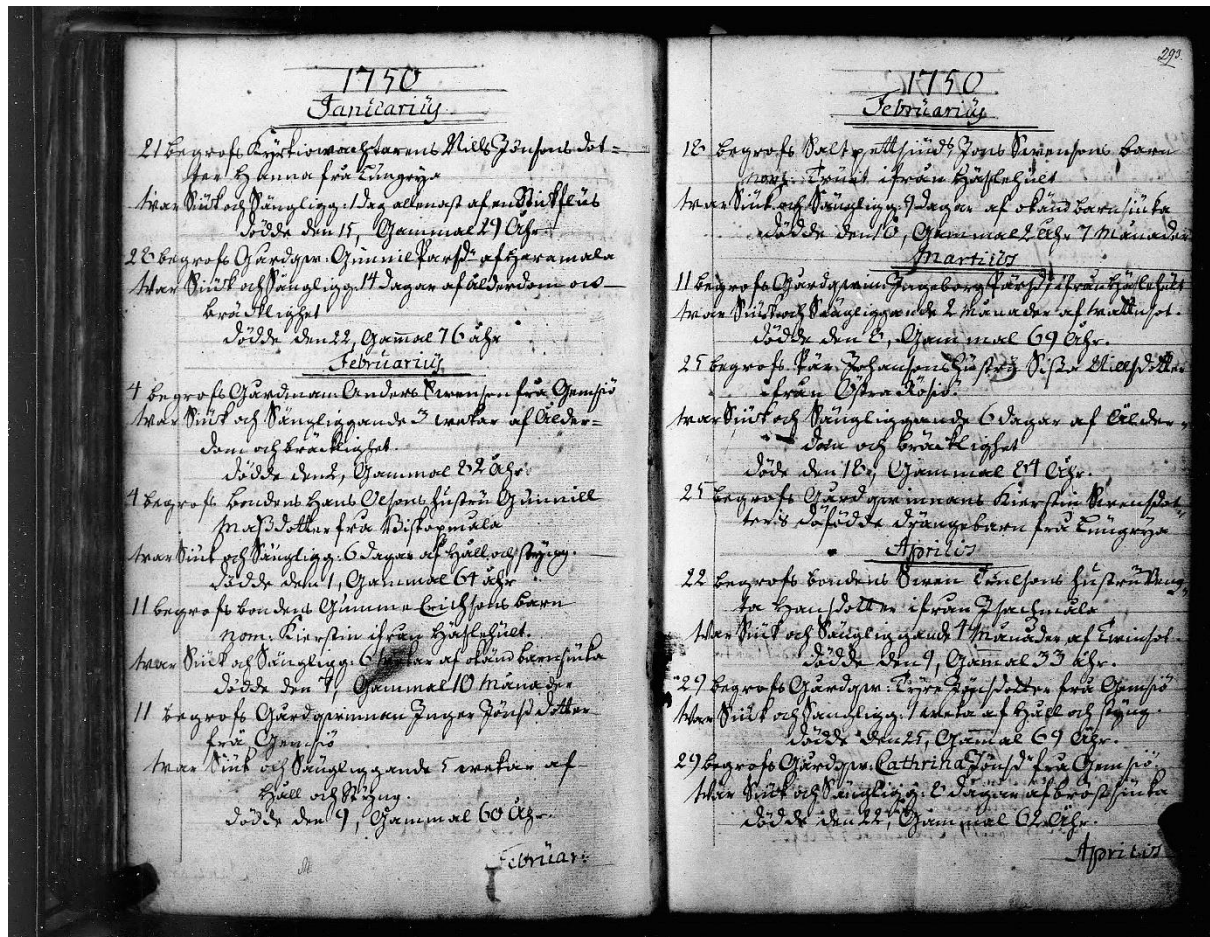 1750
Januarius
21 begrofs Kyrkiowachtarens Nills Jönsons dot=
ter Hanna fra Tüngrya
war Siuk och Sängligg: 1 dag allenast af en Stickflüs
dödde den 15, Gammal 29 Åhr
28 begrofs Gårdqw: Gunnil Parsd: af Haramala
War Siuk och Sängligg: 14 dagar af ålderdom och
bräcklighet
dödde den 22, Gamal 76 åhr
Februarius
4 begrofs Gårdman Anders Swensen fra Gemsiö
war Siuk och Sängliggande 3 wekar af Ålder=
dom och bräcklighet.
dödde den 2, Gammal 82 Åhr.
4 begrofs bondens Hans Olsons hustru Gunnill
Maßdotter fra Biskopmala
war Siuk och Sängligg: 6 dagar af Håll och styng.
dödde den 1, Gammal 64 åhr
11 begrofs bondens Gumme Erichsons barn
nom: Kierstin ifran Haslehult.
war Siuk och Sängligg: 6 wekar af okänd barnsiuka
dödde den 7, Gammal 10 Månader
11 begrofs Gårdqwinnan Inger Jönsdotter
frå Gemsiö
war Siuk och Sängliggande 5 wekar af
Håll och Styng
dödde den 9, Gammal 60 Åhr.
Februar:
293.
1750
Februarius
18 begrofs Saltpettsiuds Jons Swensons barn
nom: Truls ifrån Haslehult
war Siuk och Sängligg: 9 dagar af okänd barnsiuka
dödde den 10, Gammal 2 Åhr 7 Månader
Martius
11 begrofs Gårdqwin: Ingeborg Pärsd: ifrån Haslehult
war Siuk och Sängliggande 2 Månader af wattusot.
dödde den 8, Gammal 69 Åhr.
25 begrofs Pär Johansons hustru Sißa Nillsdotter
ifran Östra Rösiö.
war Siuk och Sängliggande 6 dagar af Ålder=
dom och bräcklighet
döde den 18, Gammal 84 Åhr.
25 begrofs Gårdqwinnans Kierstin Swensdot=
ters döfödde drängebarn fra Tüngrya
Aprilis
22 begrofs bondens Swen Truelsons hustru Beng=
ta Hansdotter ifran Isachmala
War Siuk och Sängliggande 4 Månader af Twinsot.
dödde den 9, Gammal 33 åhr.
29 begrofs Gårdqw: Tyre Jönsdotter frå Gemsiö
War Siuk och Sängligg: 1 weka af Håll och styng.
dödde den 25, Gammal 69 Åhr.
29 begrofs Gårdqw: Cathrina Jönsd: fra Gemsiö
War Siuk och Sängligg: 8 dagar af bröstsiuka
dödde den 22, Gammal 62 Åhr.
Aprilis